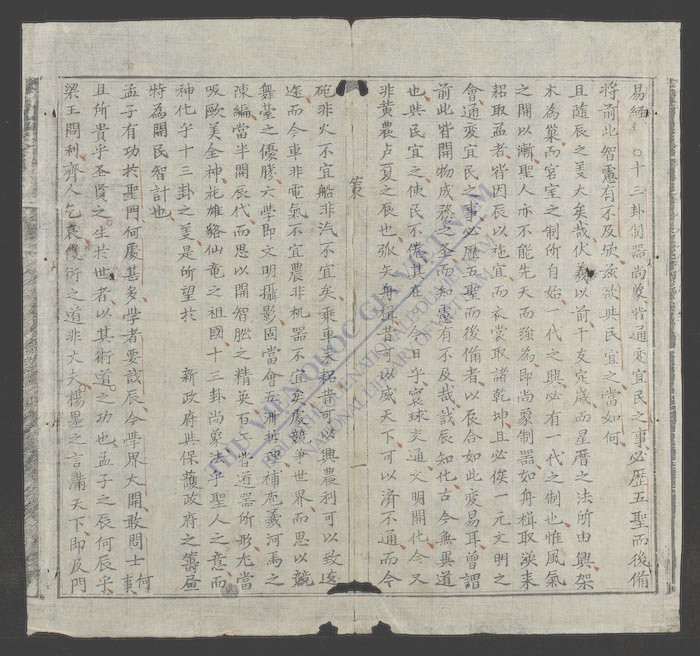 易經○十三卦制器尚象皆通变宜民之事必歷五聖而後備
將前此智慮有不及欤茲欲與民宜之當如何
且隨辰之義大矣哉伏羲以前干支定歲而星曆之法所由興架
木為巢而宮室之制所自始一代之興必有一代之制也惟風氣
之開以漸聖人亦不能先天而強為即尚象制器如舟楫取渙耒
耜取益者皆因辰以施宜而衣裳取諸乾坤且必俟一元文明之
會通变宜民之事必歷五聖而後備者以辰合如此变易耳曾謂
前此皆開物成務之聖而知慮有不及哉哉辰知化古今無異道
也與民宜之使民不倦其在今日乎寰球交通文明開化今又
非黃農卢夏之辰也弧矢舟楫昔可以威天下可以濟不通而今
策
一
砲非火不宜船非汽不宜矣乘車耒耜昔可以興農利可以致遠
途而今車非電氣不宜農非机器不宜矣處競争世界而思以競
舞臺之優勝六學即文明攝影固當會五洲哲理補庖羲河馬之
陳編當半開辰代而思以開智脳之精英百工皆適器所形尤當
吸歐美全神花雄貉仙童之祖國十三卦尚象法乎聖人之意而
神化乎十三卦之美是所望於新政府與保護政府之籌画
特為開民智計也
孟子有功於聖門何處甚多學者要哉辰今學界大開敢問士何事
且所貴乎圣賢之生於世者以其術道之功也孟子之辰何辰乎
梁王問利齊人乞哀儀衍之道非丈夫楊墨之言滿天下即及門
THƯ VIỆN QUỐC GIA VIỆT NAM
NATIONAL LIBRARY OF VIETNAM